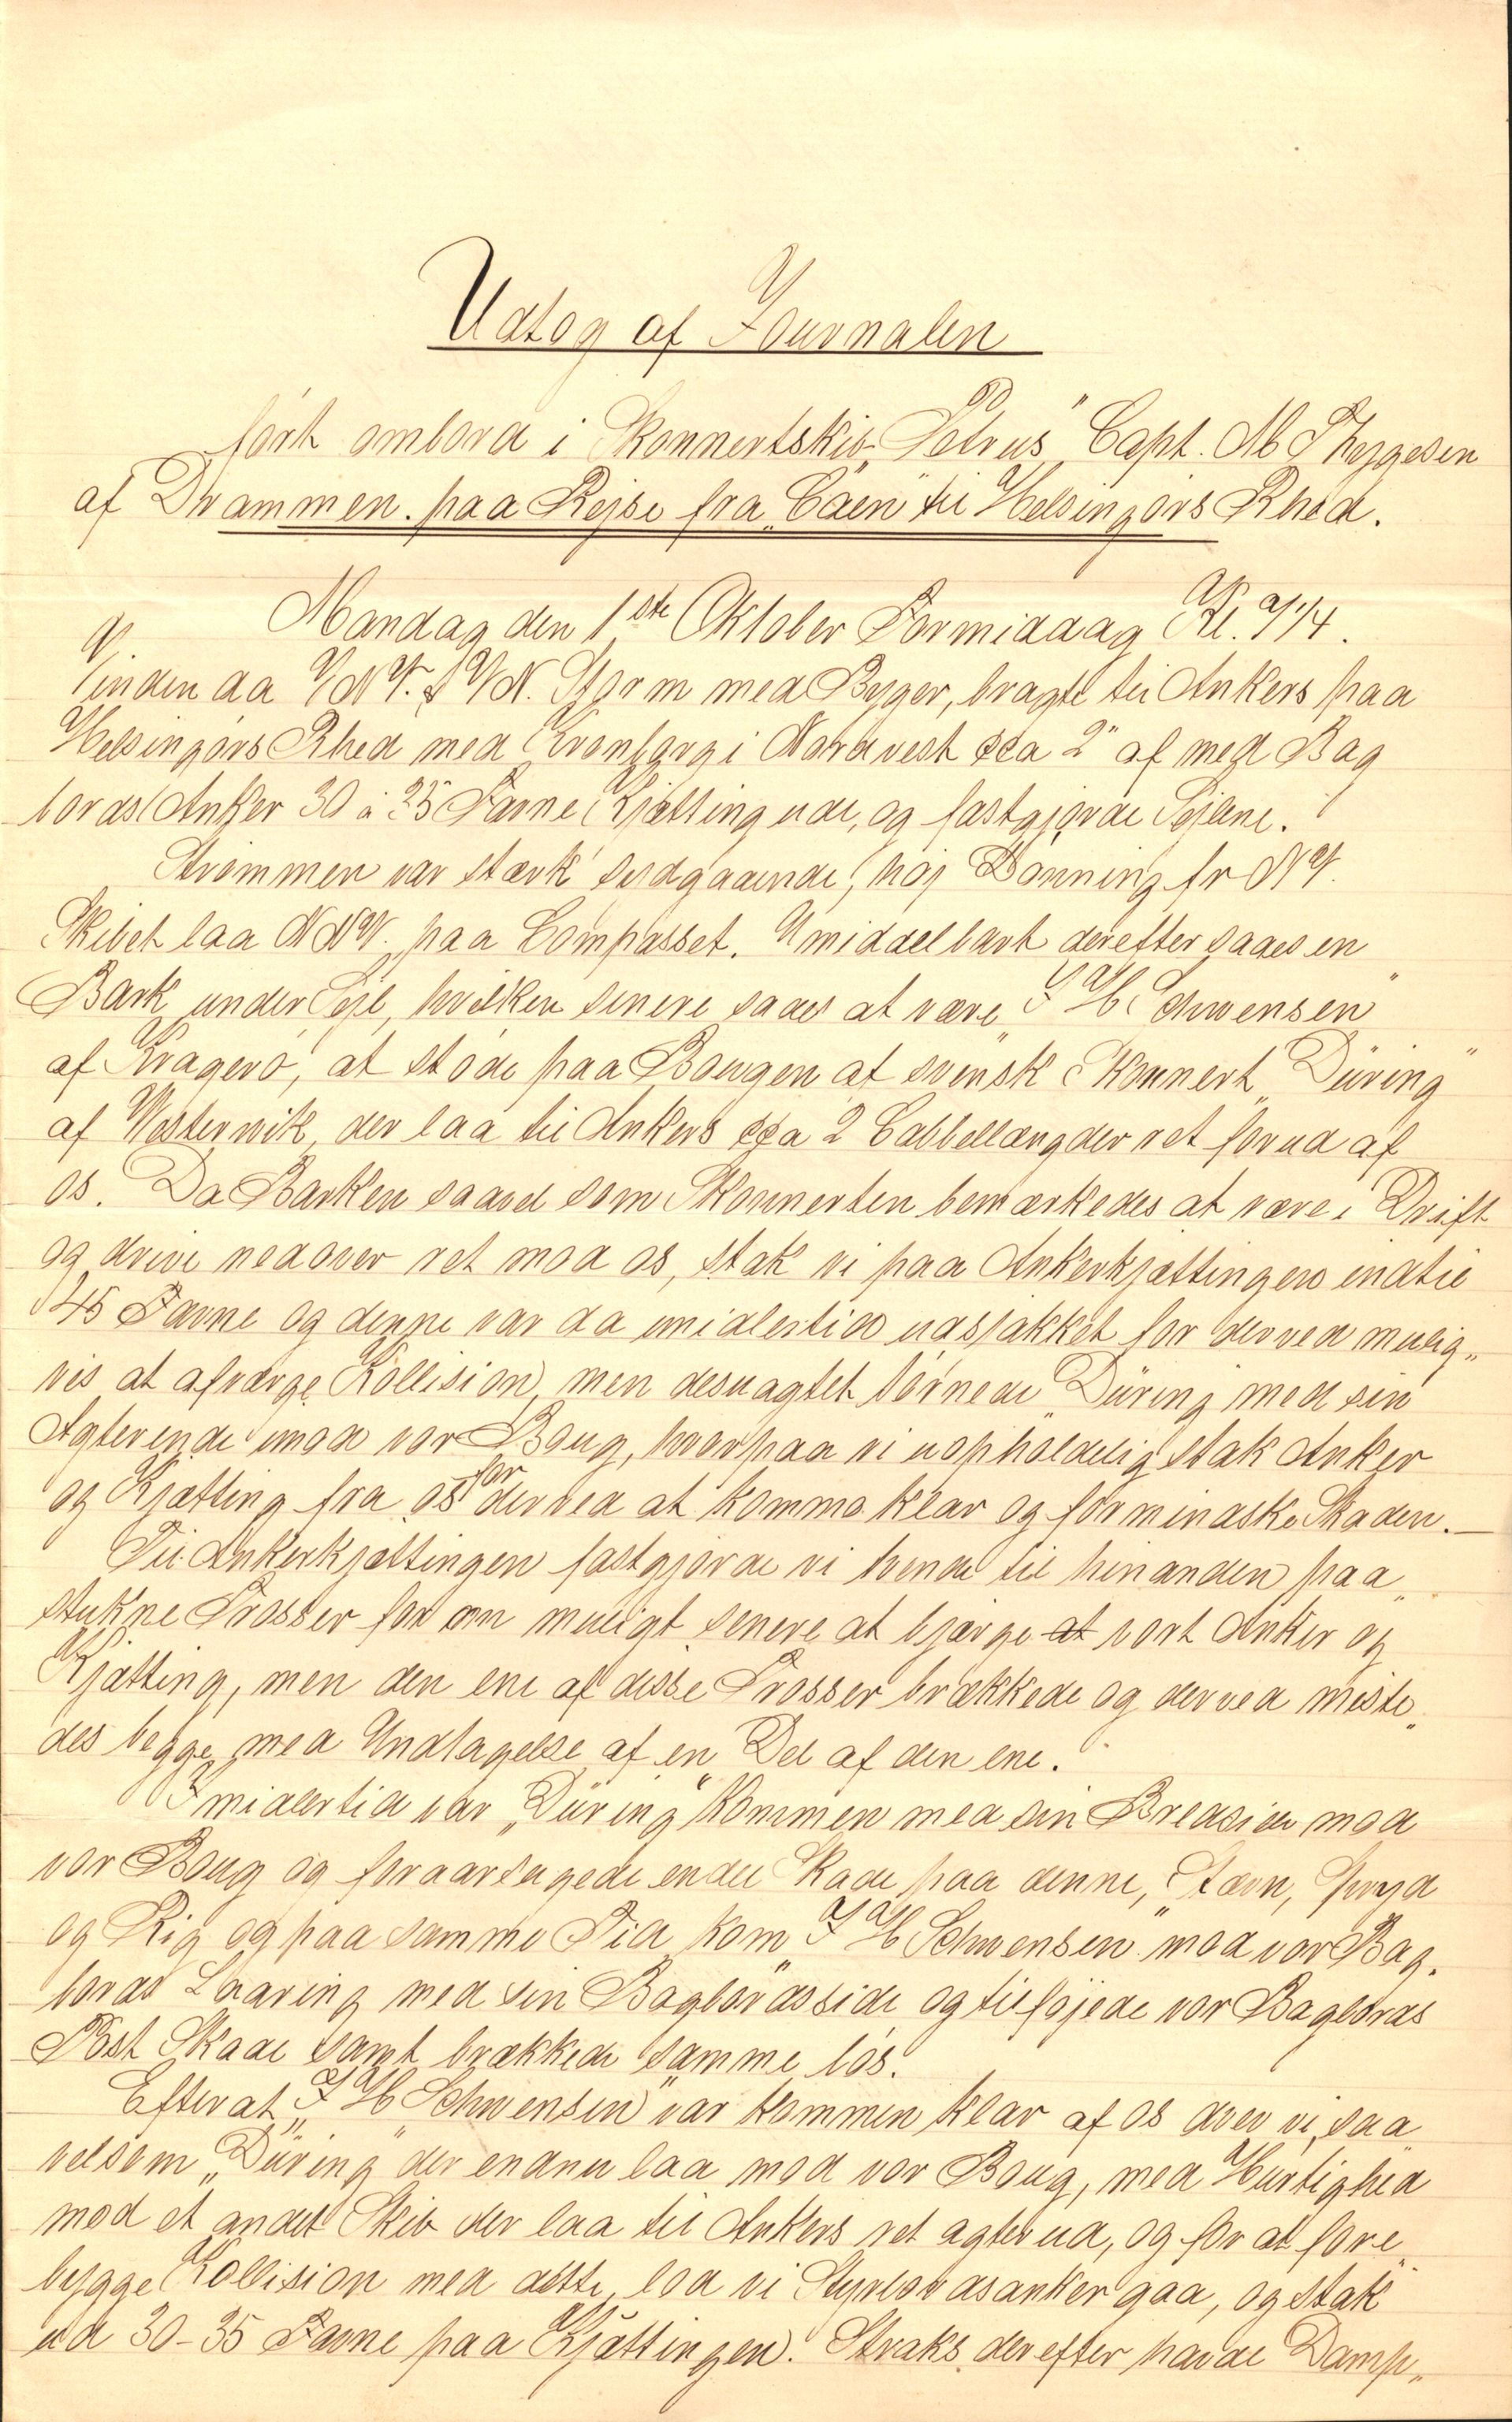 Udtog af Journalen
ført ombord i Skonnertskib „Petrus” Capt. M Thygesen
af Drammen. paa Rejse fra „Caen” til Helsingørs Rhed.
Mandag den 1ste Oktober Formiddag Kl. 9 1/4.
Vinden da VNV. & VN. Storm med Byger, bragte til Ankers paa
Helsingørs Rhed med Kronborg i Nordvest cca 2" af med Bag
bords Anker 30 à 35 Favne Kjætting ude, og fastgjorde Sejlene.
Strømmen var stærk sydgaaende, høj Dønning fr NV.
Skibet laa NNV. paa Compasset. Umiddelbart derefter saaes en
Bark under Sejl, hvilken senere saaes at være „I H Schwensen”
af Kragerø, at støde paa Bougen af svensk Skonnert „Düring”
af Westerwik, der laa til Ankers cca 2 Cabbellængder ret forud af
os. Da Barken saavel som Skonnerten bemærkedes at være i Drift
og drive nedover ret mod os, stak vi paa Ankerkjættingen indtil
45 Favne og denne var da imidlertid udsjakket for derved mulig„
vis at afværge Kollision, men desuagtet tørnede „Düring” med sin
Agterende imod vor Boug, hvorpaa vi uopholdelig stak Anker
og Kjætting fra os for derved at komme klar og formindske Skaden.—
Til Ankerkjættingen fastgjorde vi tvende til hinanden paa„
stukne Trosser for om muligt senere at bjærge at vort Anker og
Kjætting, men den ene af disse Trosser brækkede og derved miste„
des begge med Undtagelse af en Del af den ene.
Imidlertid var „Düring” kommen med sin Bredside mod
vor Boug og foraarsagede endel Skade paa denne, Stævn, Spryd
og Rig og paa samme Tid kom „I H Schwensen mod vor Bag.
bords Laaring med sin Bagbordsside og tilføjede vor Bagbords
Røst Skade samt brækkede samme løs.
Efterat „I H Schwensen” var kommen klar af os drev vi, saa„
velsom „Düring” der endnu laa mod vor Boug, med Hurtighed
mod et andet Skib der laa til Ankers ret agterud, og for at fore„
bygge Kollision med dette, lod vi Styrbordsanker gaa, og stak
ud 30-35 Favne paa Kjættingen. Straks derefter havde Damp„